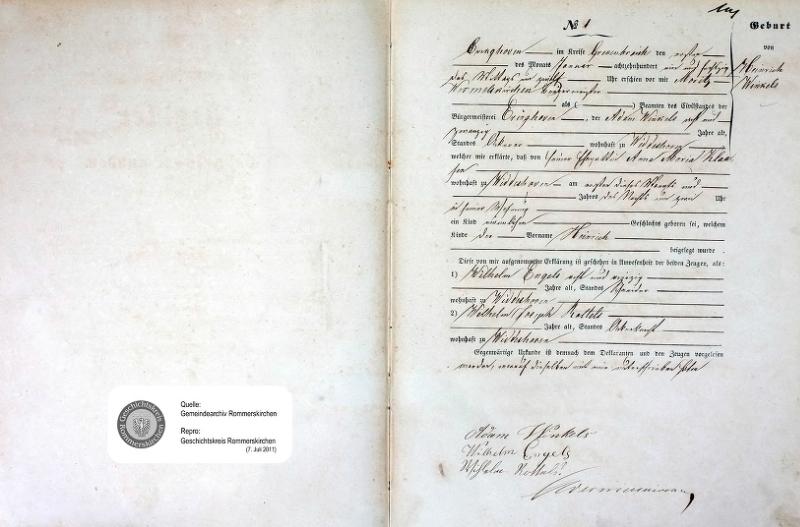 № 1
Geburt
von
Heinrich
Winkels
Evinghoven im Kreise Grevenbroich den ersten
des Monats Januar achtzehnhundert ein und sechszig
des Mittags um zwölf Uhr erschien vor mir Moritz
Wermelskirchen Bürgermeister
als ( ) Beamten des Civilstandes der
Bürgermeisterei Evinghoven, der Adam Winkels acht und
zwanzig Jahre alt,
Standes Ackerer wohnhaft zu Widdeshoven
welcher mir erklärte, daß von seiner Ehegattin Anna Maria
wohnhaft zu Widdeshoven am ersten dieses Monats und
Jahres des Nachts um zwei Uhr
in seiner Wohnung
ein Kind männlichen Geschlechts geboren sei, welchem
Kinde der Vorname Heinrich
beigelegt wurde.
Diese von mir aufgenommene Erklärung ist geschehen in Anwesenheit der beiden Zeugen, als:
1) Wilhelm Engels acht und vierzig
Jahre alt, Standes Schneider
wohnhaft zu Widdeshoven
2) Wilhelm Joseph Rottels
Jahre alt, Standes Ackerknecht
wohnhaft zu Widdeshoven
Gegenwärtige Urkunde ist demnach dem Deklaranten und den Zeugen vorgelesen
worden, worauf dieselben mit mir unterschrieben haben
Adam Winkels
Wilhelm Engels
Wilhelm Rottels
Geschichtskreis
Rommerskirchen
Quelle:
Gemeindearchiv Rommerskirchen
Repro:
Geschichtskreis Rommerskirchen
(7. Juli 2011)